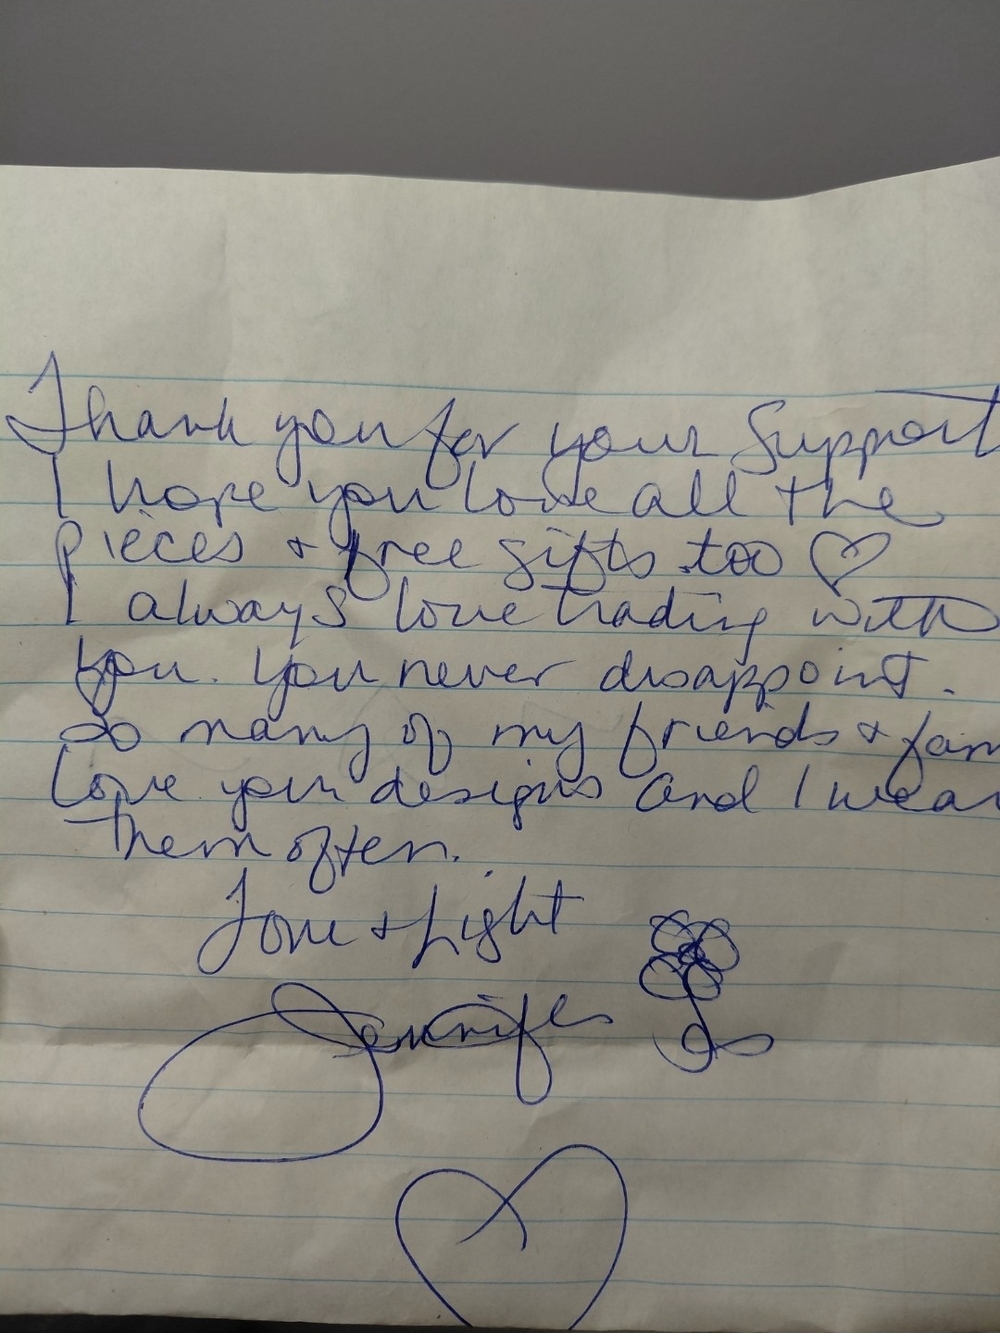 Thank you for your Support
I hope you love all the
pieces + free gifts too
I always love trading with
you. You never disappoint.
So many of my friends + fam
Love your designs and I wear
them often.
Love + Light
Jennifer